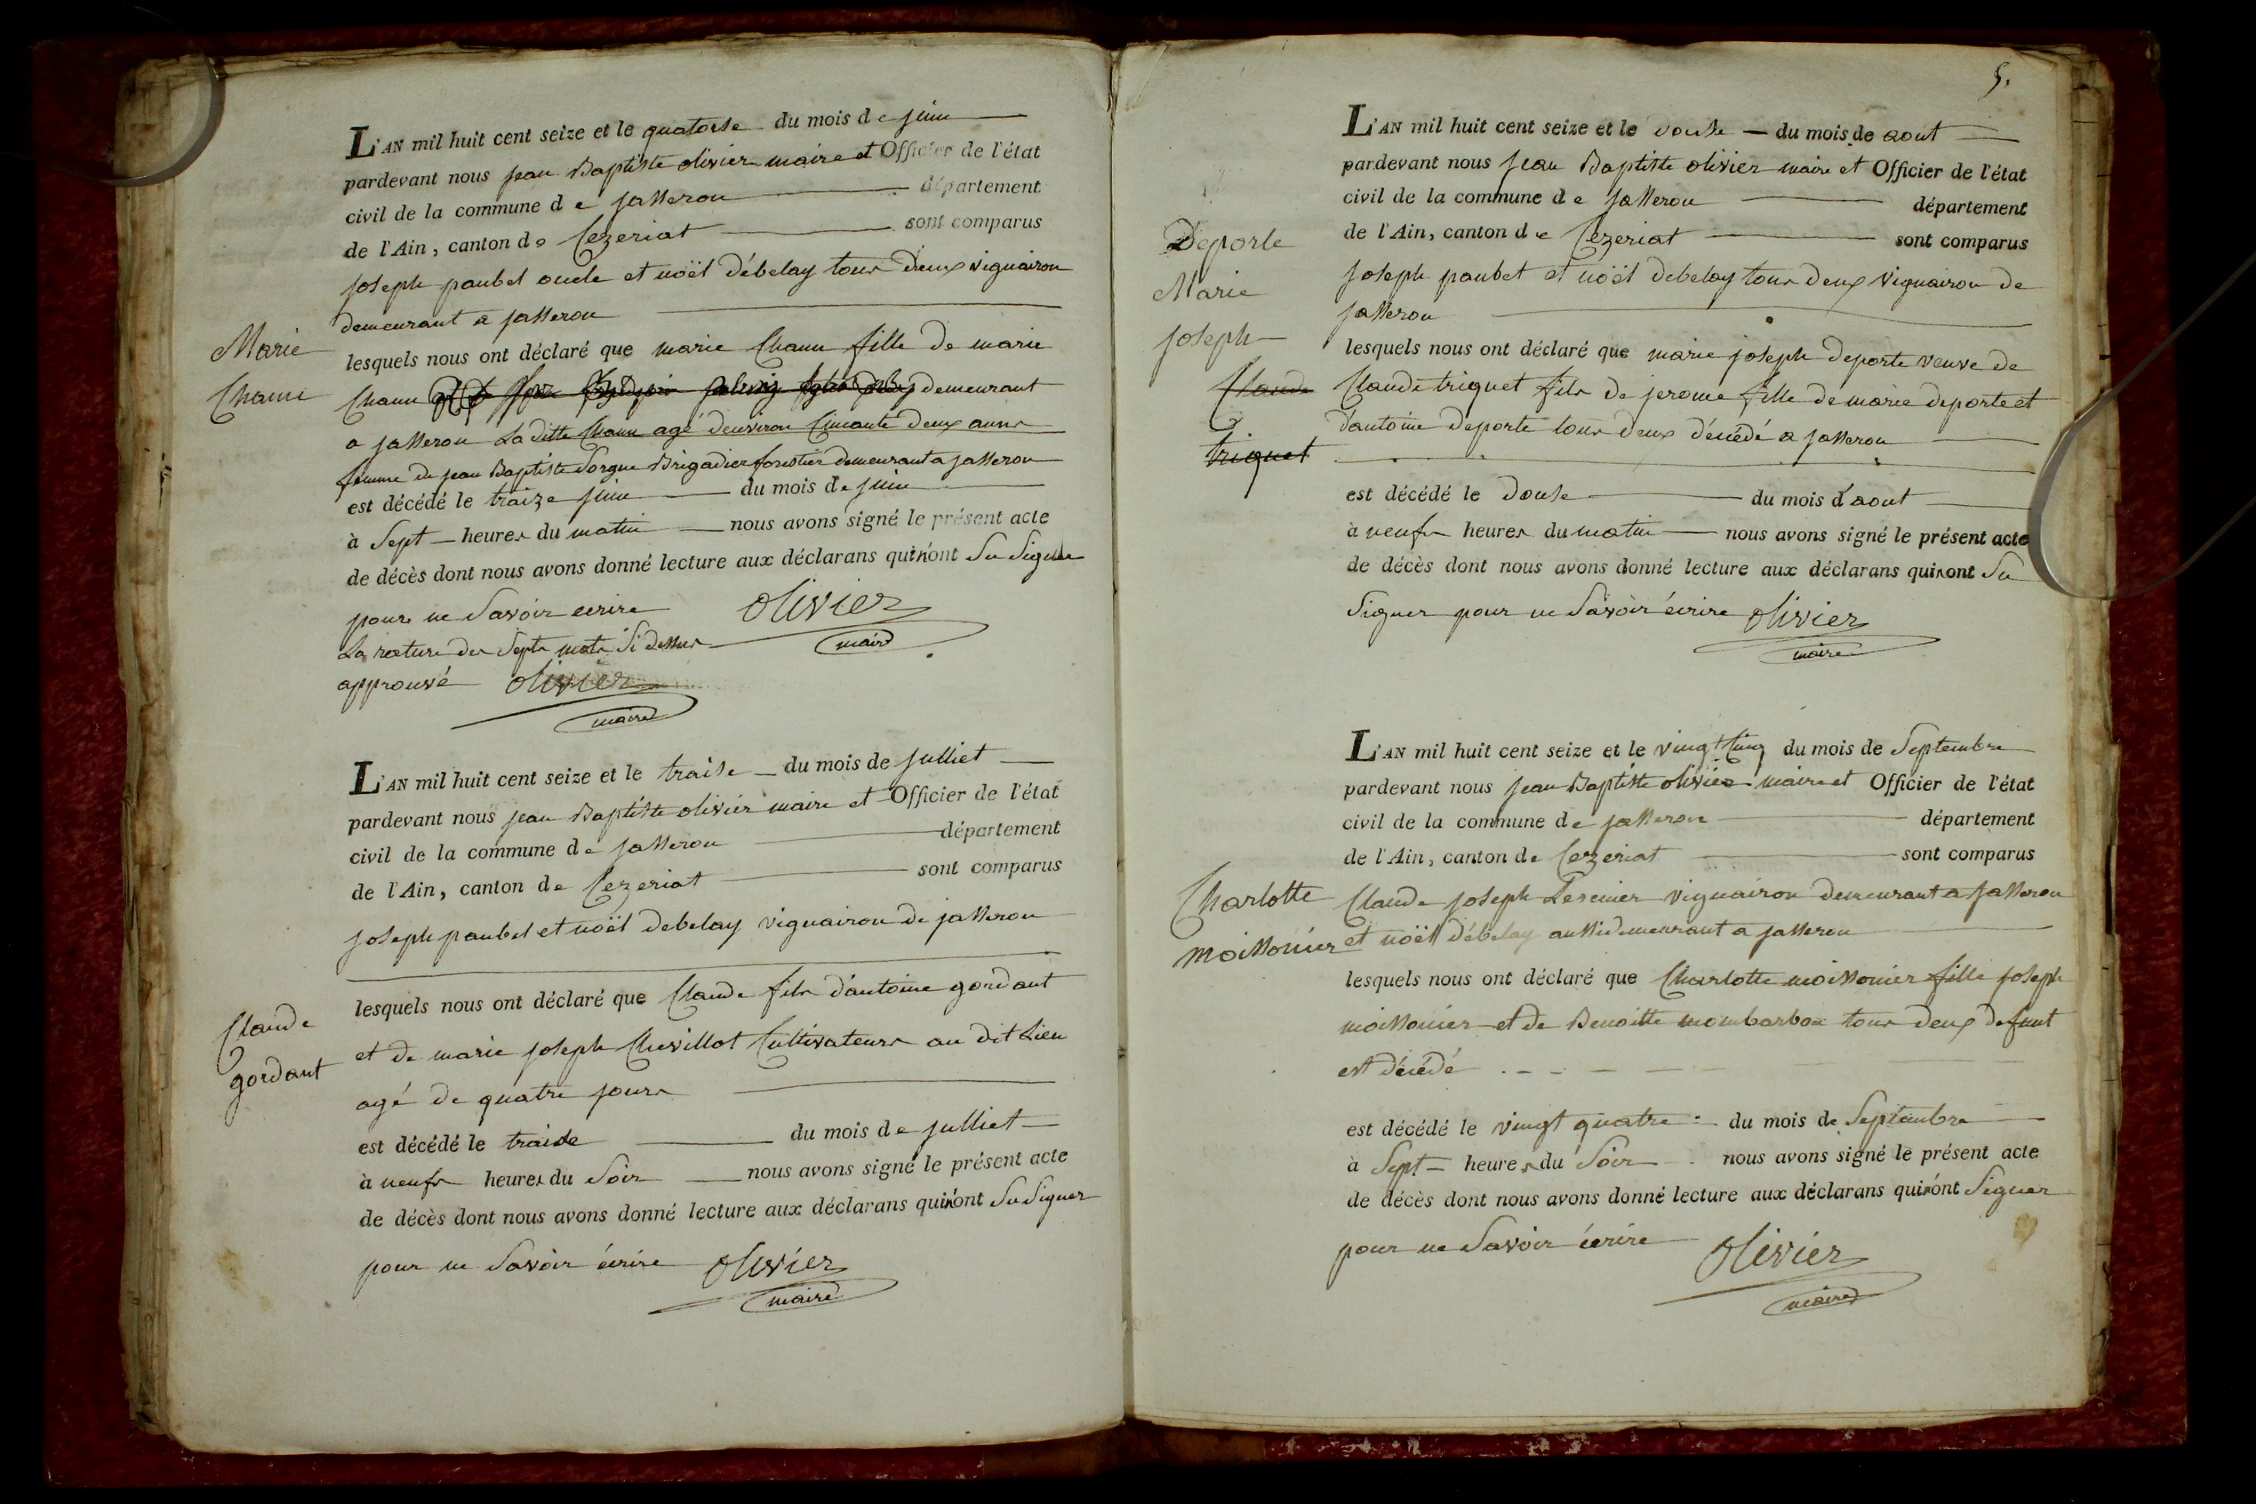 L'AN mil huit cent seize et le quatorse du mois de juin
pardevant nous jean Baptiste olivier maire et Officier de l'état
civil de la commune de jasseron département
de l'Ain, canton de Cezeriat sont comparus
joseph paubel oncle et noël débelay tous deux vignairon
demeurant a jasseron
Marie
Chanu
lesquels nous ont déclaré que marie Chanu fille de marie
Chanu demeurant
a jasseron La ditte Chanu agé denviron Cincante deux anns
femme de jean Baptiste Brigadier forestier demeurant a jasseron
est décédé le traize juin du mois de juin
à Sept heures du matin nous avons signé le présent acte
de décès dont nous avons donné lecture aux déclarans qui n'ont Su Signer
pour ne Savoir ecrire olivier
maire
La rature des Septs mots Si dessus
approuvé olivier
maire
L'AN mil huit cent seize et le traise du mois de julliet
pardevant nous jean Baptiste olivier maire et Officier de l'état
civil de la commune de jasseron département
de l'Ain, canton de Cezeriat sont comparus
joseph paubel et noël debelay vignairon de jasseron
Claude
gordant
lesquels nous ont déclaré que Claude fils d'antoine gordant
et de marie joseph Chevillot Cultivateurs au dit Lieu
agé de quatre jours
est décédé le traise du mois de julliet
à neufs heures du Soir nous avons signé le présent acte
de décès dont nous avons donné lecture aux déclarans qui n'ont Su Signer
pour ne Savoir écrire olivier
maire
5.
L'AN mil huit cent seize et le douse du mois de aout
pardevant nous jean Baptiste olivier maire et Officier de l'état
civil de la commune de jasseron département
de l'Ain, canton de Cezeriat sont comparus
joseph paubel et noël debelay tous deux vignairon de
jasseron
Deporte
Marie
joseph
Claude
triquet
lesquels nous ont déclaré que marie joseph deporte veuve de
Claude triquet fils de jerome fille de marie deporte et
d'antoine deporte tous deux décédé a jasseron
est décédé le douse du mois d'aout
à neufs heures du matin nous avons signé le présent acte
de décès dont nous avons donné lecture aux déclarans qui n'ont Su
Signer pour ne Savoir écrire olivier
maire
L'AN mil huit cent seize et le vingt Cinq du mois de Septembre
pardevant nous jean Baptiste olivier maire et Officier de l'état
civil de la commune de jasseron département
de l'Ain, canton de Cezeriat sont comparus
Charlotte
moissonier
Claude joseph vignairon demeurant a jasseron
et noël débelay aussi demeurant a jasseron
lesquels nous ont déclaré que Charlotte moissonier fille joseph
moissonier et de Benoitte mombarbon tous deux defunt
est décédé
est décédé le vingt quatre du mois de Septembre
à Sept heures du Soir nous avons signé le présent acte
de décès dont nous avons donné lecture aux déclarans qui n'ont Signer
pour ne Savoir écrire olivier
maire